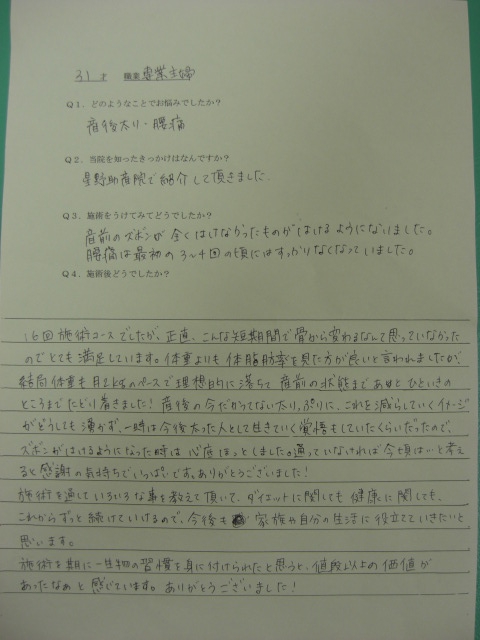 31才 職業 専業主婦
Q1．どのようなことでお悩みでしたか？
産後太り・腰痛
Q2．当院を知ったきっかけはなんですか？
星野助産院で紹介して頂きました。
Q3．施術をうけてみてどうでしたか？
産前のズボンが全くはけなかったものがはけるようになりました。
腰痛は最初の3〜4回の頃にはすっかりなくなっていました。
Q4．施術後どうでしたか？
16回施術コースでしたが、正直、こんな短期間で骨から変わるなんて思っていなかった
のでとても満足しています。体重よりも体脂肪率を見た方が良いと言われましたが、
結局体重も月2kgのペースで理想的に落ちて産前の状態まであとひといきの
ところまでたどり着きました！産後の今だかつてない太りっぷりに、これを減らしていくイメージ
がどうしても湧かず、一時は今後太った人として生きていく覚悟もしていたくらいだったので、
ズボンがはけるようになった時は心底ほっとしました。通っていなければ今頃は…と考え
ると感謝の気持ちでいっぱいです。ありがとうございました！
施術を通していろいろな事を教えて頂いて、ダイエットに関しても健康に関しても、
これからずっと続けていけるので、今後も家族や自分の生活に役立てていきたいと
思います。
施術を期に一生物の習慣を身に付けられたと思うと、値段以上の価値が
あったなぁと感じています。ありがとうございました！